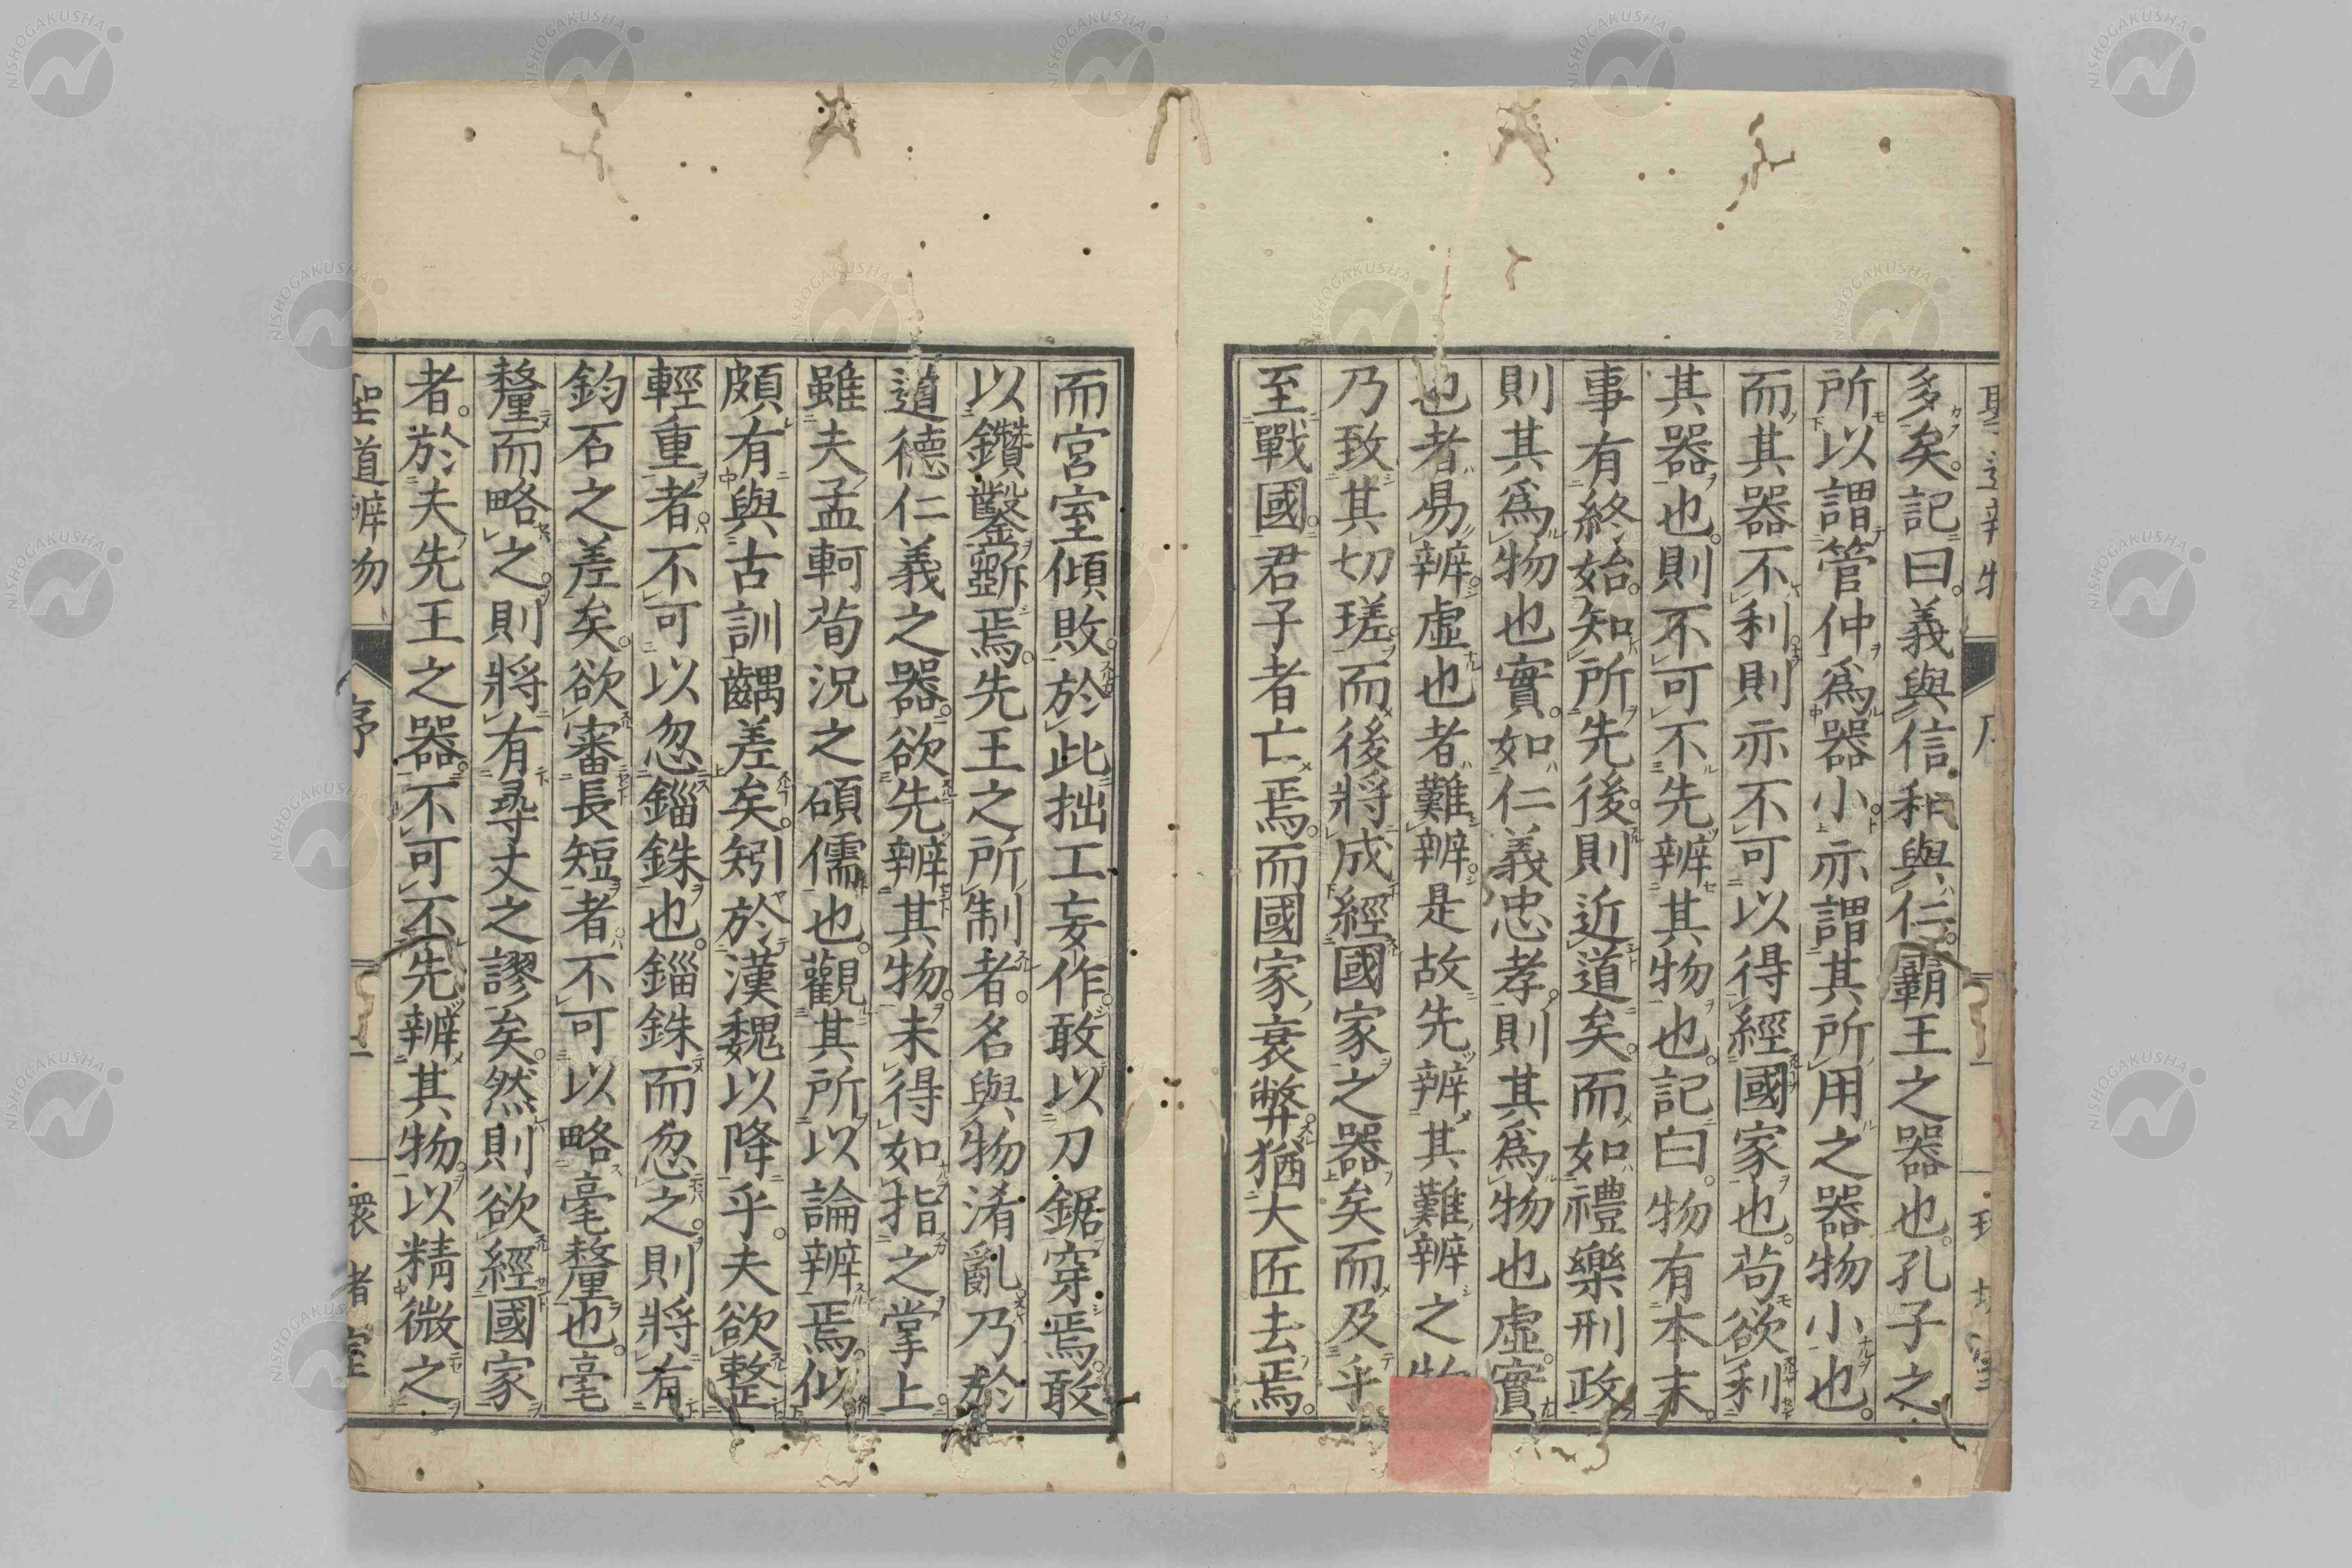 多矣。記曰。義與信和與仁。霸王之器也。孔子之
所以謂管仲爲器小。亦謂其所用之器物小也。
而其器不利。則亦不可以得經國家也。苟欲利
其器也。則不可不先辨其物也。記曰。物有本末。
事有終始。知所先後。則近道矣。而如禮樂刑政
則其爲物也實。如仁義忠孝。則其爲物也虛。實
也者易辨。虛也者難辨。是故先辨其難辨之物
乃致其切瑳。而後將成經國家之器矣。而及乎
至戰國。君子者亡焉。而國家衰弊。猶大匠去焉。
而宮室傾敗。於此拙工妄作。敢以刀鋸穿焉。敢
以鑽鑿斵焉。先王之所制者。名與物淆亂。乃於
道德仁義之器。欲先辨其物。未得如指之掌上。
雖夫孟軻荀況之碩儒也。觀其所以論辨焉。似
頗有與古訓齵差矣。矧於漢魏以降乎。夫欲整
輕重者。不可以忽錙銖也。錙銖而忽之。則將有
鈞石之差矣。欲審長短者。不可以略毫釐也。毫
釐而略之。則將有尋丈之謬矣。然則欲經國家
者。於夫先王之器。不可不先辨其物。以精微之
聖道辨物 序 一 環堵室
NISHOGAKUSHA